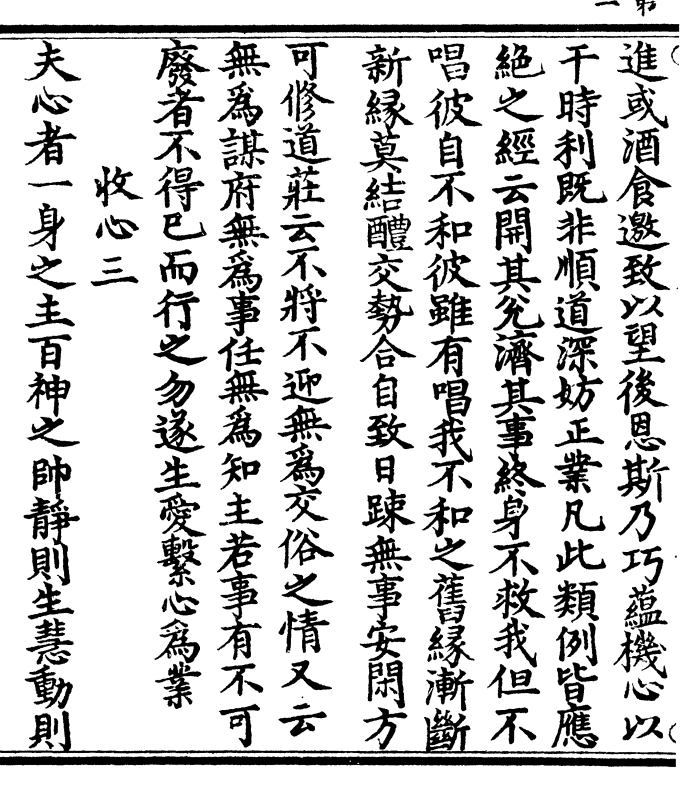 進或酒食邀致以望後恩斯乃巧藴機心以
干時利既非順道深妨正業凡此類例皆應
絶之經云開其兊濟其事終身不救我但不
唱彼自不和彼雖有唱我不和之舊緣漸斷
新緣莫結醴交勢合自致日踈無事安閑方
可修道莊云不將不迎無為交俗之情又云
無為謀府無為事任無為知主若事有不可
廢者不得已而行之勿遂生愛繫心為業
收心三
夫心者一身之主百神之帥靜則生慧動則